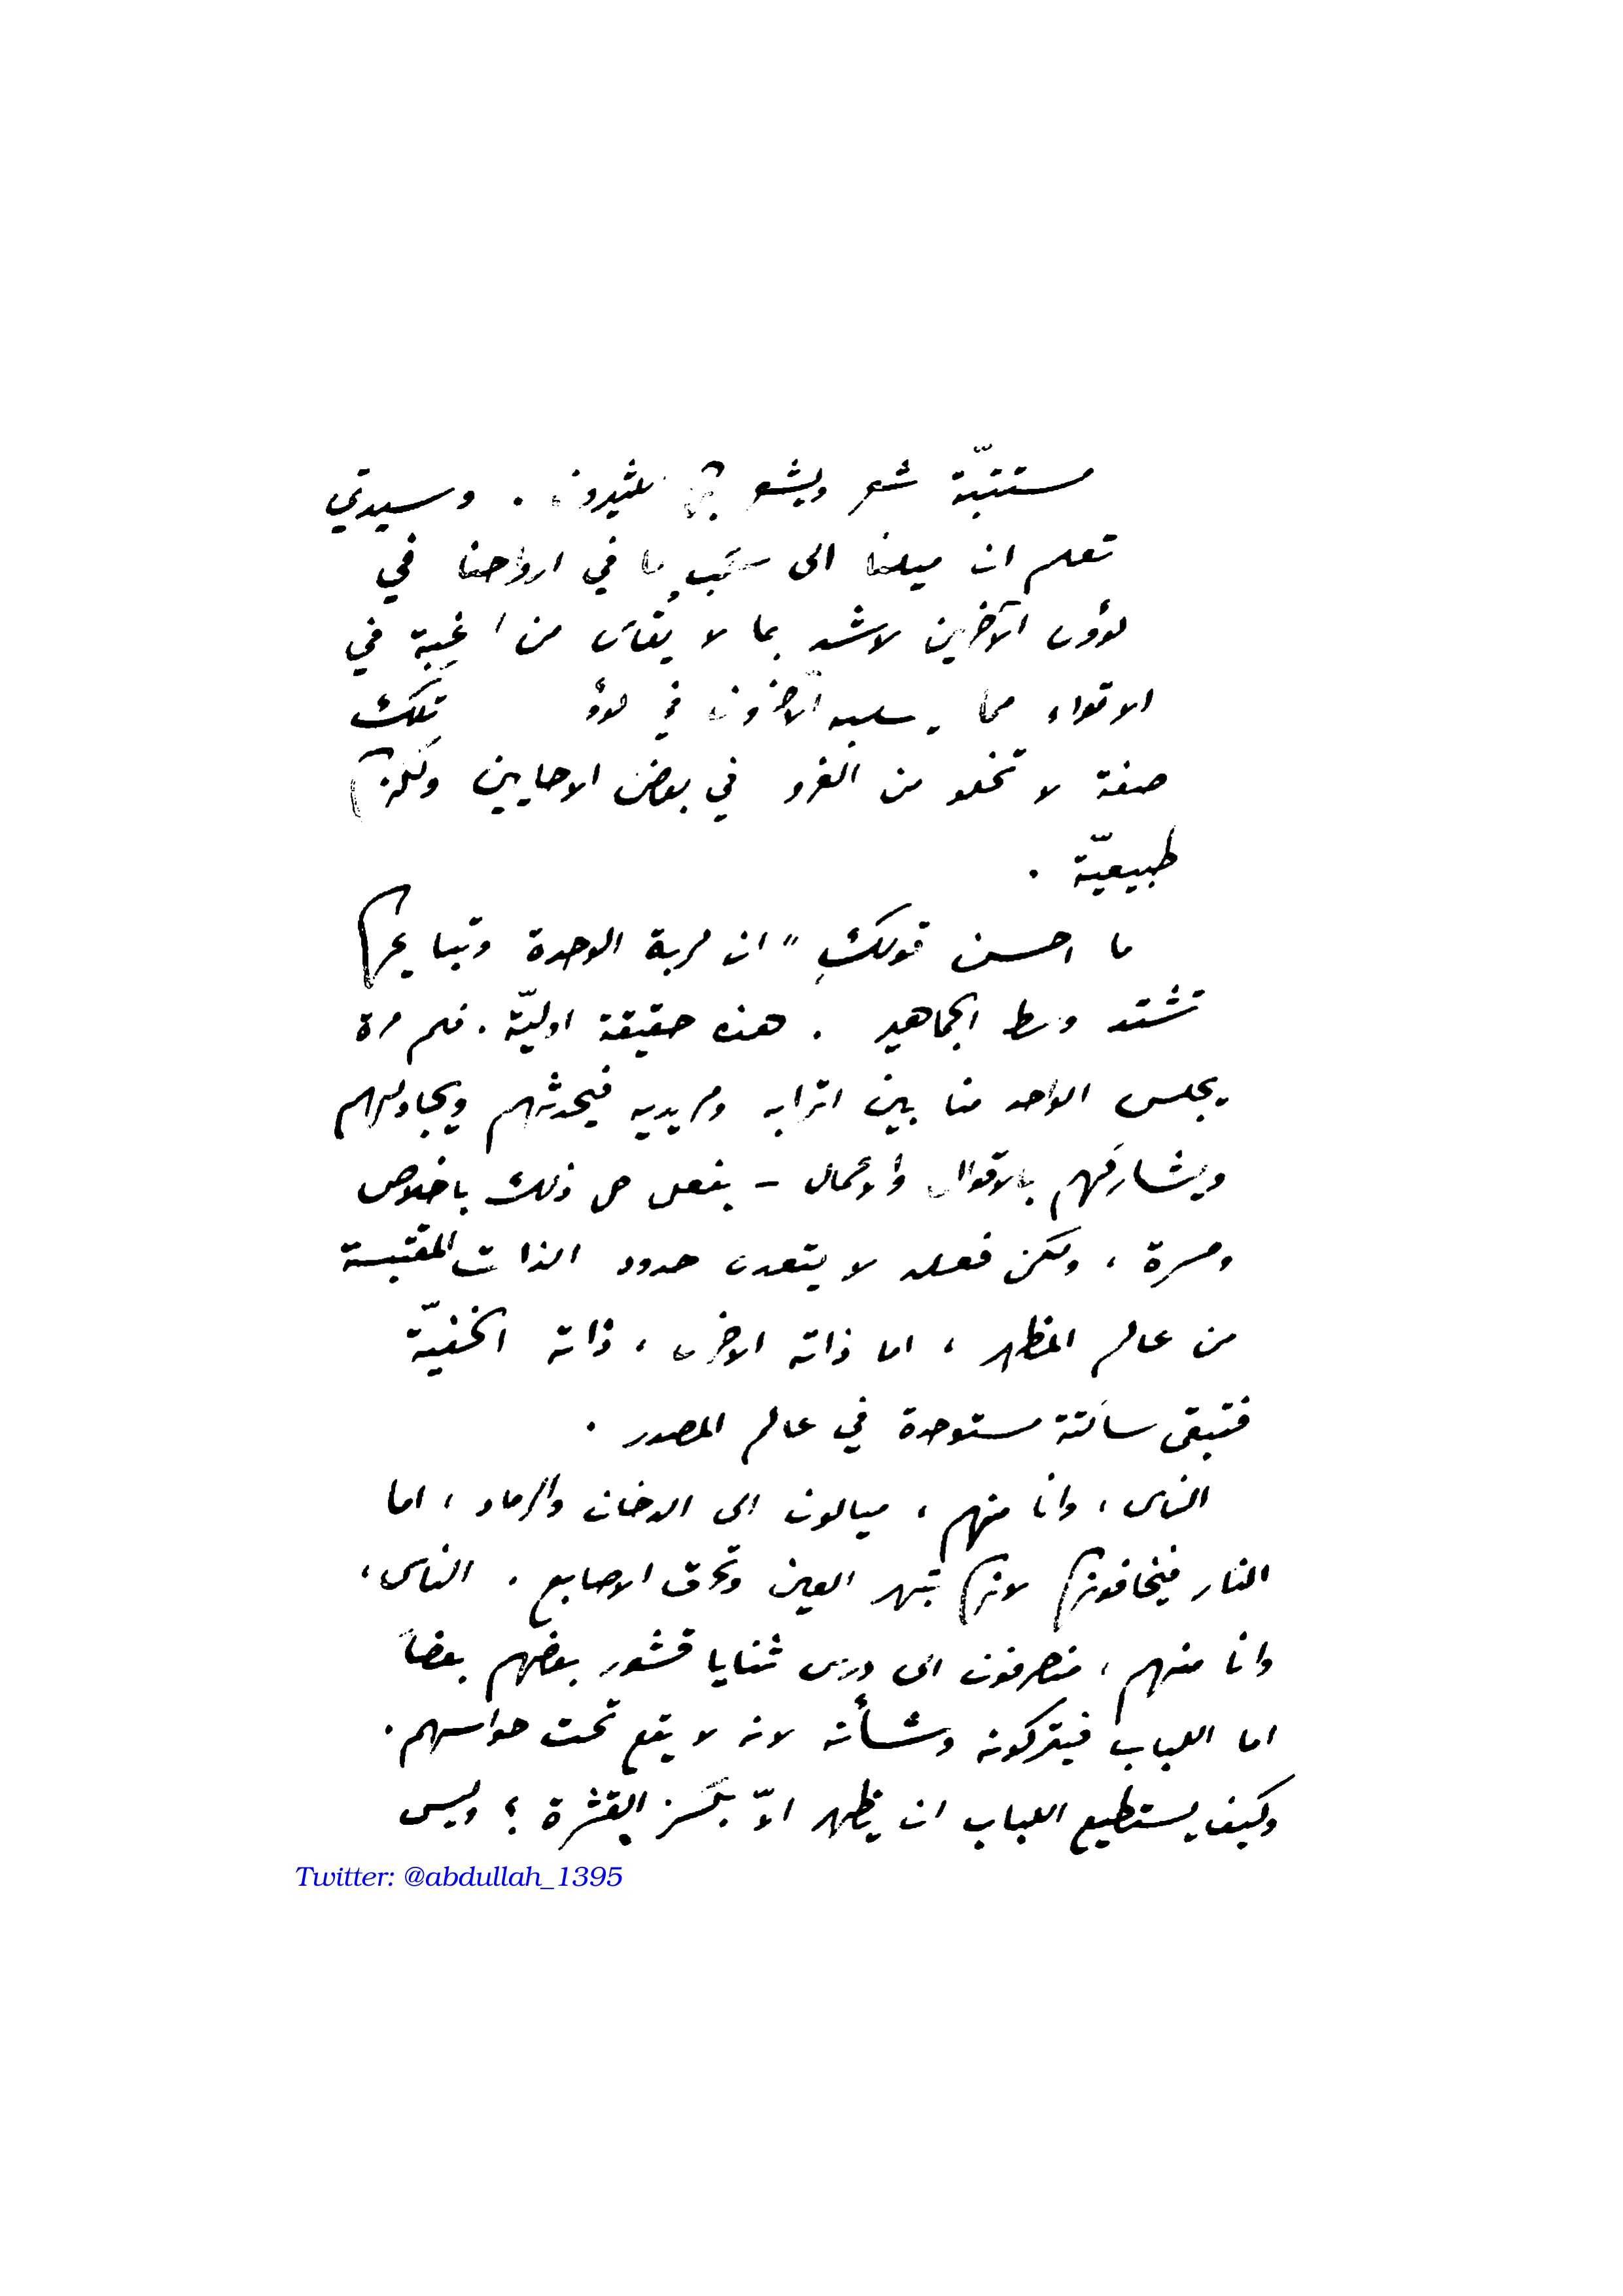 مستتبّة شعر ويشعر بها كثيرون . وسيدتي
تعلم ان ميلنا الى سكب ما في ارواحنا في
كؤوس الآخرين لاشد بما لا يُقاس من الرغبة في
الارتواء مما يسكبه الآخرون في كؤو تلك
صفة لا تخلو من الغرو في بعض الاحايين ولكنها
طبيعيّة .
ما احسن قولكِ " ان غربة الوحدة وتباريحها
تشتد وسط الجماهير . هذه حقيقة اوليّة . فكم مرة
يجلس الواحد منا بين اترابه ومريديه فيحدثهم ويجادلهم
ويشاركهم بالاقوال والأعمال – يفعل كل ذلك باخلاص
ومسرة ، ولكن فعله لا يتعدى حدود الذات المقتبسة
من عالم المظهر ، اما ذاته الاخرى ، ذاته الخفيّة
فتبقى ساكتة مستوحدة في عالم المصدر .
الناس ، وانا منهم ، ميالون الى الدخان والرماد ، اما
النار فيخافونها لانها تبهر العين وتحرق الاصابع . الناس ،
وانا منهم ، منصرفون الى درس ثنايا قشور بعضهم بعضاً
اما اللباب فيتركونه وشأنه لانه لا يقع تحت حواسهم .
وكيف يستطيع اللباب ان يظهر الاّ بكسر القشرة ؟ وليس
Twitter: @abdullah_1395